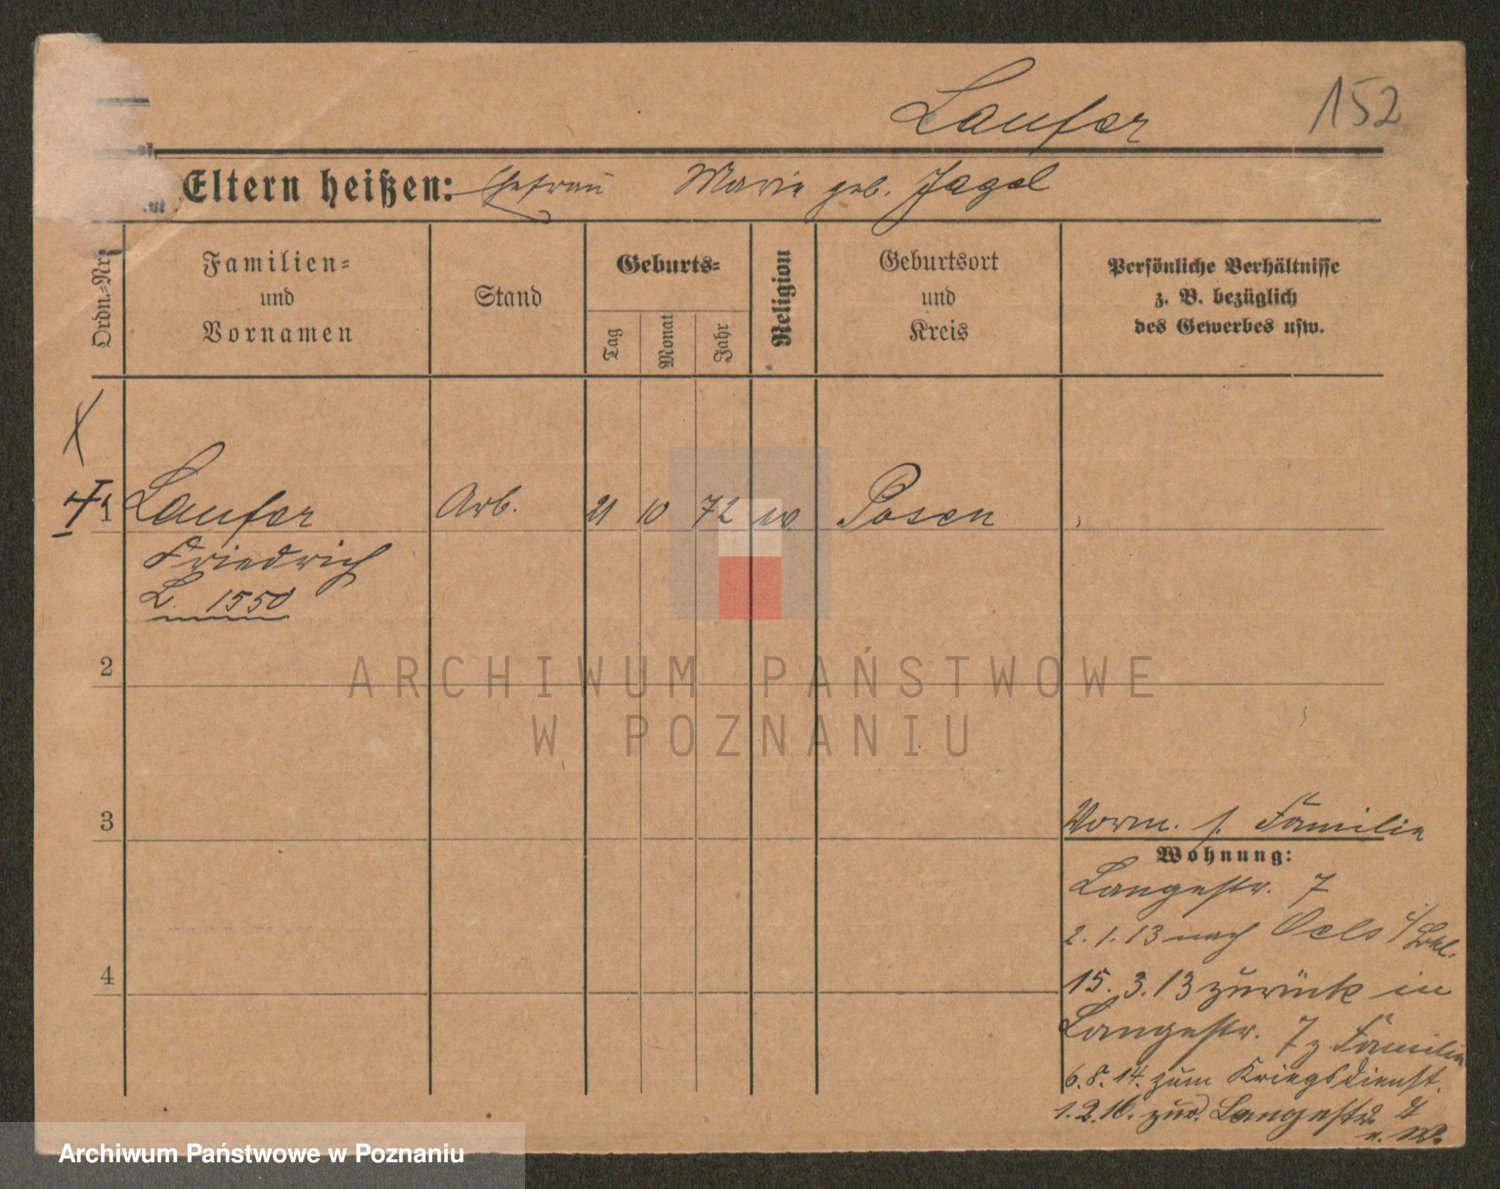 Laufer 152
Eltern heißen: Ehefrau Marie geb. Jagel
Ordn.-Nr.
Familien-
und
Vornamen
Stand
Geburts-
Tag
Monat
Jahr
Religion
Geburtsort
und
Kreis
Persönliche Verhältnisse
z. B. bezüglich
des Gewerbes usw.
1 Laufer Arb. 21 10 72 ev. Posen
Friedrich
L. 1550
2
ARCHIWUM PAŃSTWOWE
W POZNANIU
3
Vorm. s. Familie
Wohnung:
Langestr. 7
2.1.13 nach Oels
4
15.3.13 zurück in
Langestr. 7 z Familie
6.8.14. zum Kriegsdienst.
1.2.16. zur. Langestr.
Archiwum Państwowe w Poznaniu